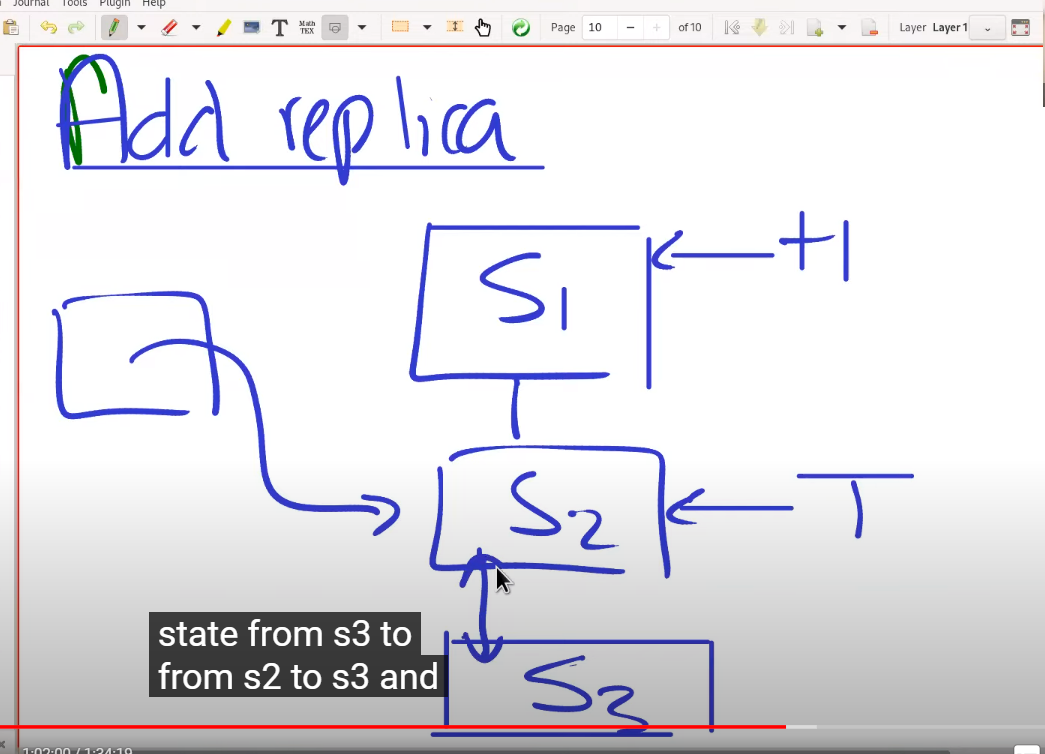 Journal Tools Plugin Help
T Math TEX Page 10 − + of 10 Layer Layer 1
Add replica
S1 H
S2 T
state from s3 to
from s2 to s3 and
S3
1:02:00 / 1:34:19